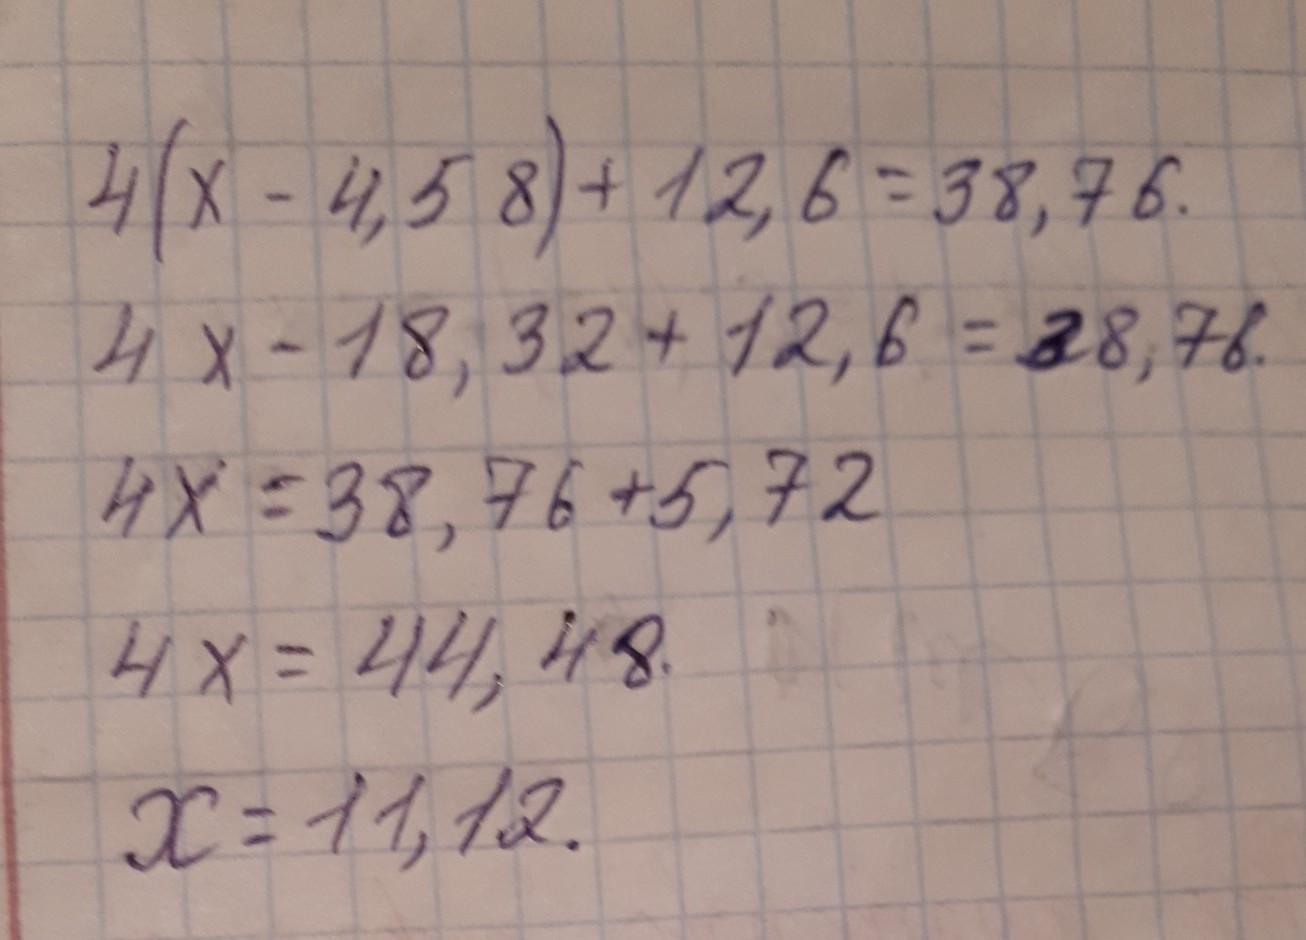 4(x - 4,58) + 12,6 = 38,76.
4x - 18,32 + 12,6 = 38,76.
4x = 38,76 + 5,72
4x = 44,48.
x = 11,12.